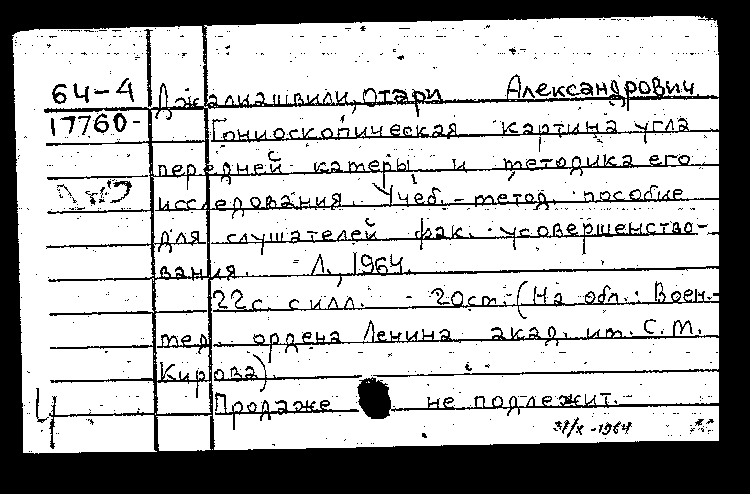 64-4 Джалиашвили, Отари Александрович
17760- Гониоскопическая картина угла
передней камеры и методика его
исследования. Учеб.-метод. пособие
для слушателей фак. усовершенство-
вания. Л., 1964.
22 с. с илл. 20 см. (На обл.: Воен.-
мед. ордена Ленина акад. им. С. М.
Кирова)
Продаже не подлежит.
31/X-1964